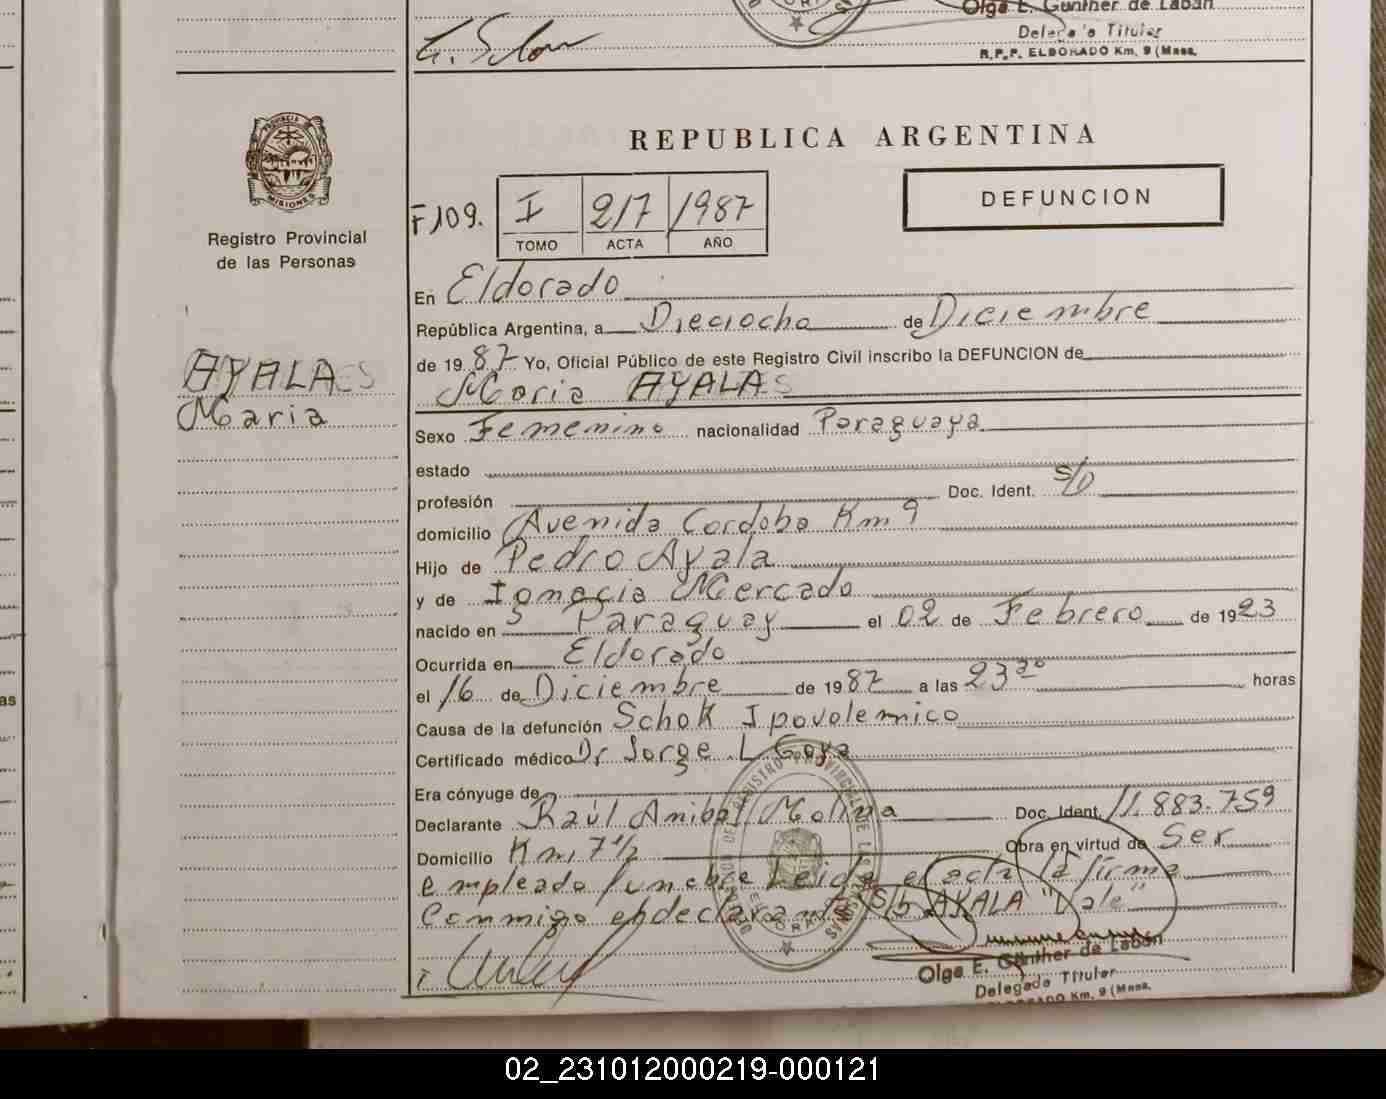 Olga E. Gunther de Laban
Delegada Titular
R.P.P. ELDORADO Km. 9 (Mnes.
PROVINCIA DE
MISIONES
Registro Provincial
de las Personas
AYALA
Maria
REPUBLICA ARGENTINA
F 109.
I 217 1987
TOMO ACTA AÑO
DEFUNCION
En Eldorado
República Argentina, a Dieciocho de Diciembre
de 1987 Yo, Oficial Público de este Registro Civil inscribo la DEFUNCION de
Maria AYALA
Sexo Femenino nacionalidad Paraguaya
estado
profesión Doc. Ident. S/D
domicilio Avenida Cordoba Km 9
Hijo de Pedro Ayala
y de Ignacia Mercado
nacido en Paraguay el 02 de Febrero de 1923
Ocurrida en Eldorado
el 16 de Diciembre de 1987 a las 23 30 horas
Causa de la defunción Schok Ipovolemico
Certificado médico Dr Jorge L Goya
Era cónyuge de
Declarante Raúl Anibal Molina Doc. Ident. 11.883.759
Domicilio Km, 7 1/2 Obra en virtud de Ser
empleado funebre Leida el acta la firma
Conmigo el declarante S/b AYALA "Vale"
Olga E. Günther de Laban
Delegado Titular
ELDORADO Km. 9 (Mnes.
02_231012000219-000121